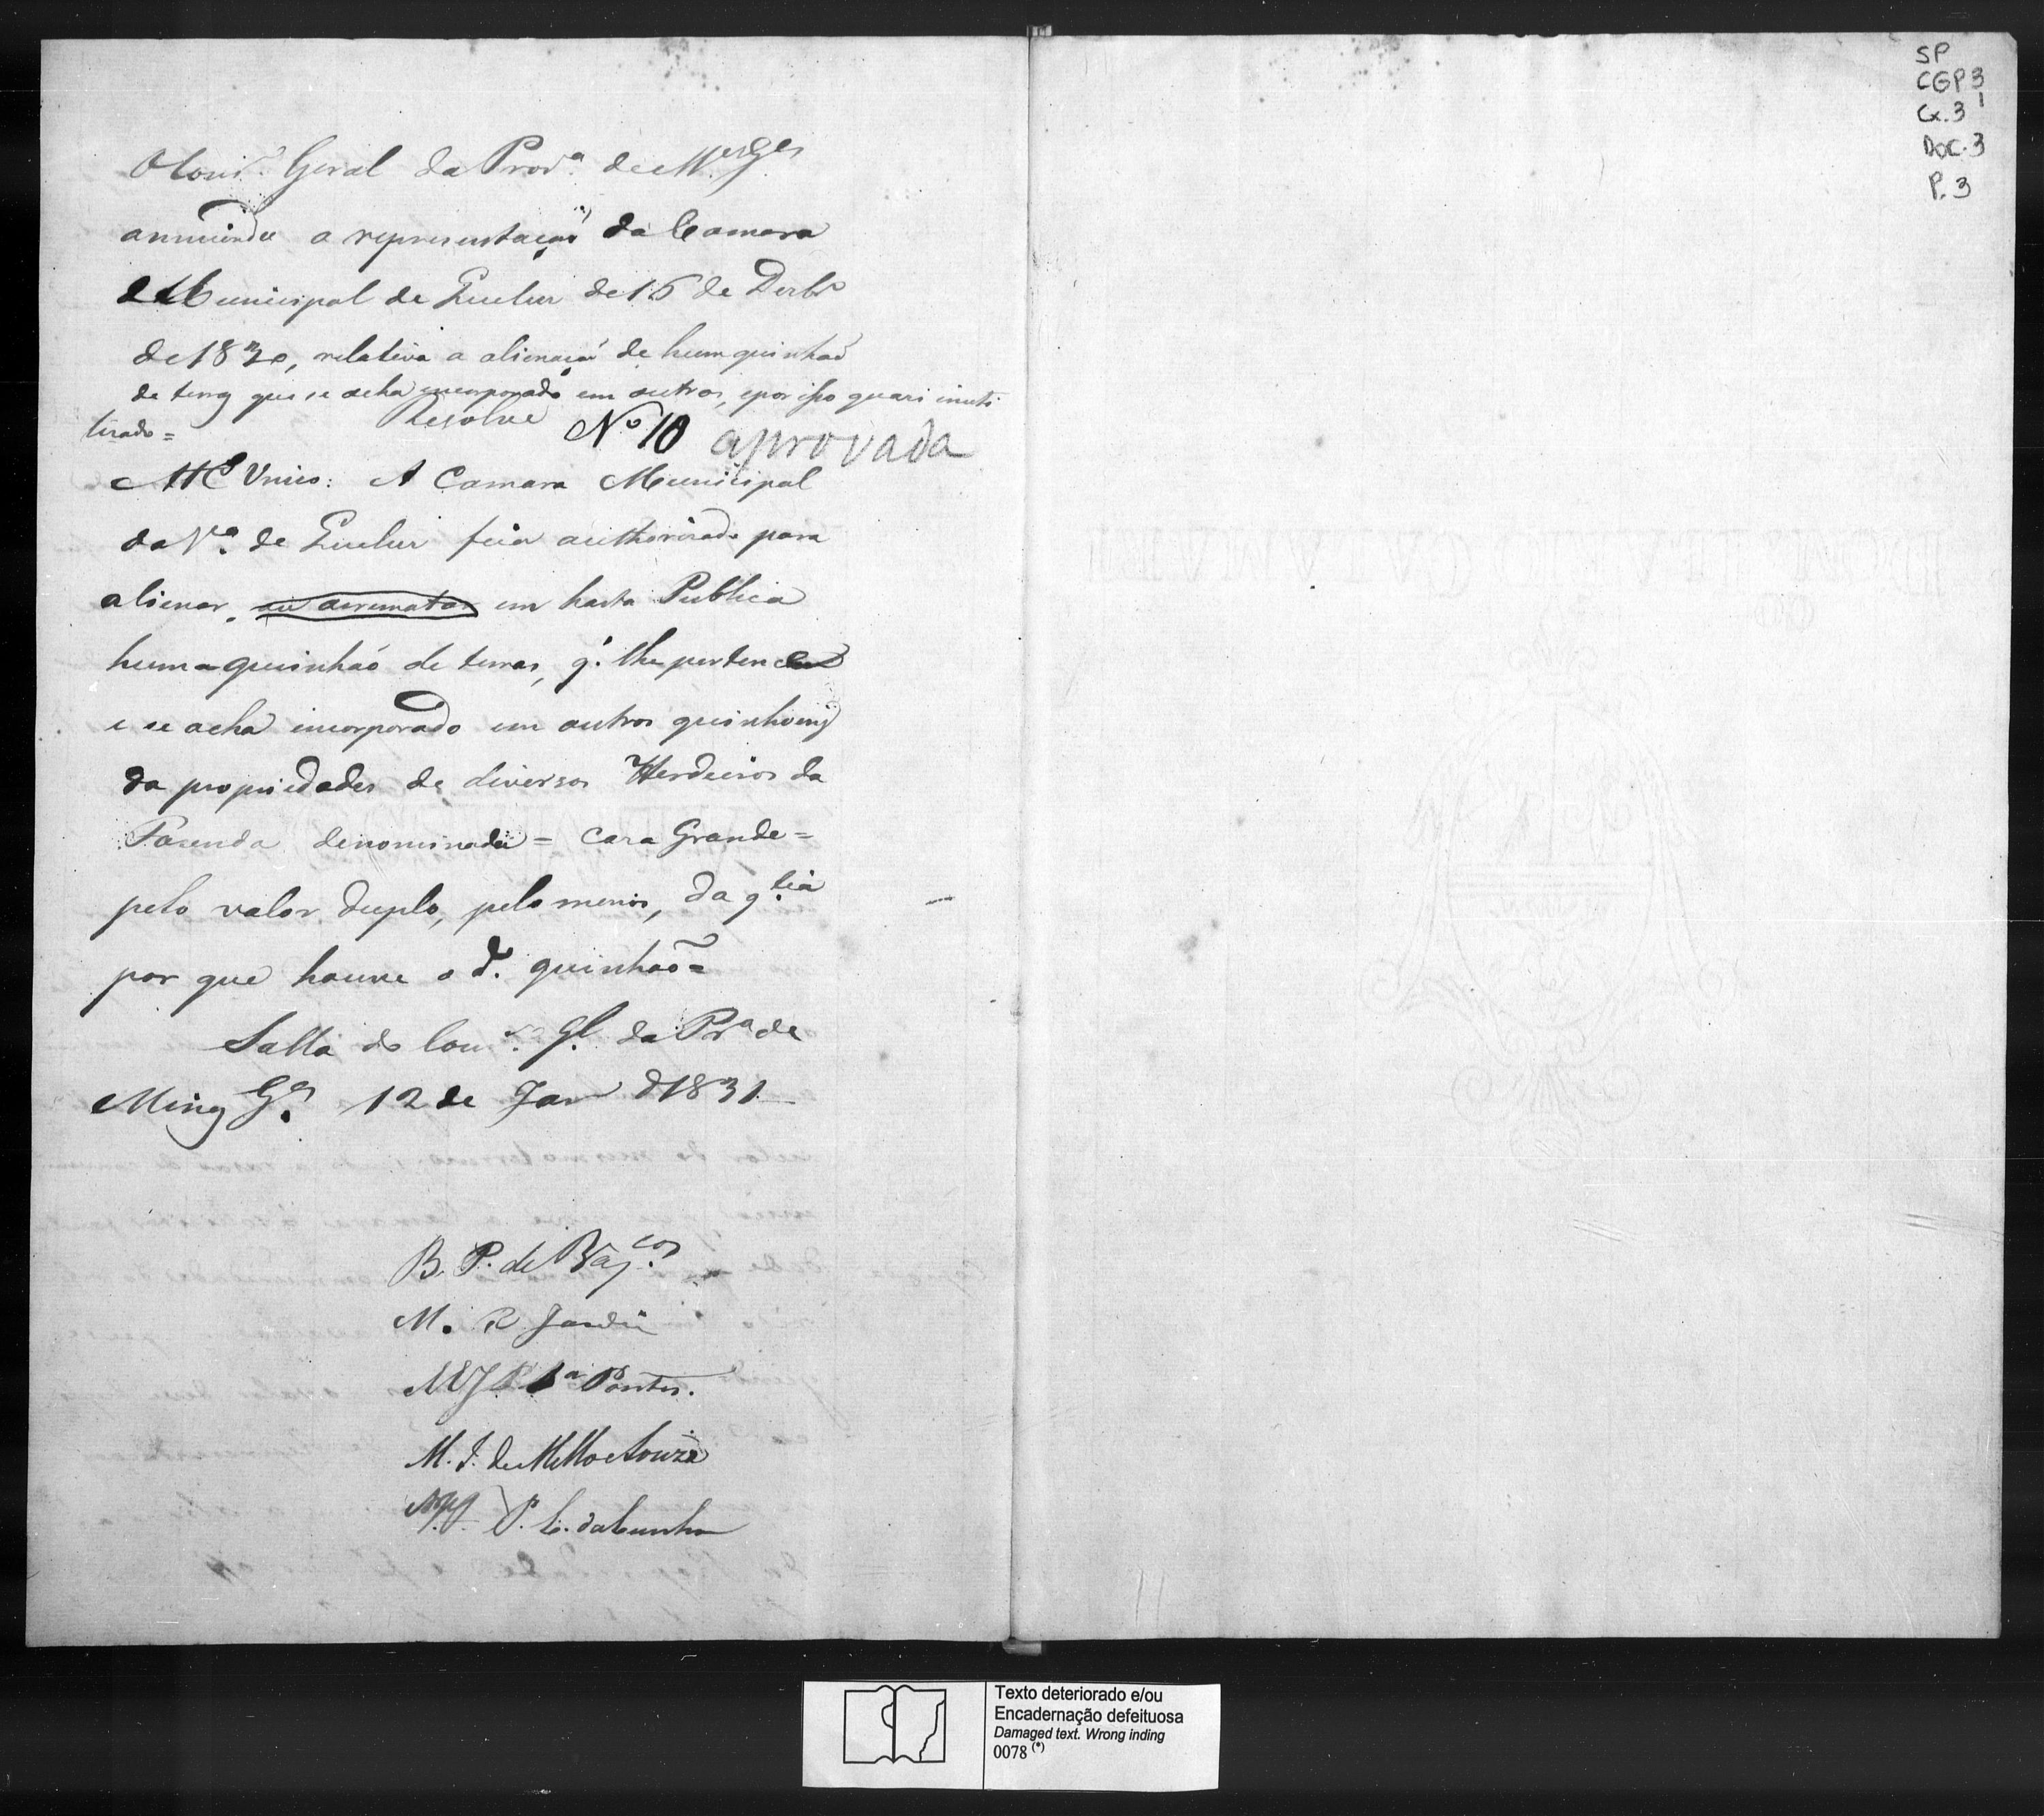 O Cons.º Geral da Prov.ª de M.as G.es
annuindo a representação da Camara
Municipal de Queluz de 16 de Dezbro
de 1830, relativa a alienação de hum quinhaõ
de terras que se acha encorporado em outros, e por isso quasi inuti
lizado =
Resolve
Nº 10 aprovada
Art.º Unico: A Camara Municipal
da V.ª de Queluz fica authorizada para
alienar, ou arrematar em hasta Publica
huma quinhaõ de terras, q.' lhe pertence
e se acha incorporado em outros quinhoens
da propriedades de diversos Herdeiros da
Fasenda denominada = Cara Grande =
pelo valor duplo, pelo menos, da q.tia
por que houve o d.º quinhaõ =
Salla do Cons.º G.l da Pr.ª de
Minas G.es 12 de Janr.º d 1831.
B. P. de Vas.cos
M. Jardim
P.ra Pontes.
M. I. de Mello e Souza
P. C. da Cunha
SP
CGP 31
Cx. 3
Doc. 3
P. 3
Texto deteriorado e/ou
Encadernação defeituosa
Damaged text. Wrong inding
0078 (*)